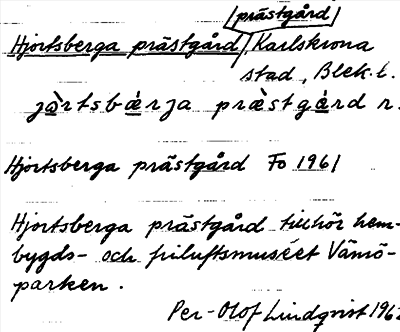 /prästgård/
Hjortsberga prästgård/, Karlskrona
stad, Blek. l.
jòrtsbǽrja prèstgǻrd n.
Hjortsberga prästgård Fo 1961
Hjortsberga prästgård tillhör hem-
bygds- och friluftsmuséet Vämö-
parken.
Per-Olof Lindqvist